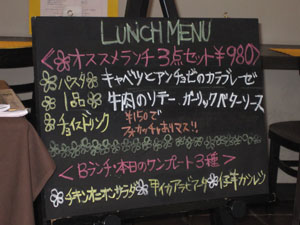 LUNCH MENU
<オススメランチ3点セット¥980>
パスタ キャベツとアンチョビのカラブレーゼ
1品 牛肉のソテー ガーリックバターソース
チョイスドリンク ¥150で
フォカッチャおかわりマス!!
<Bランチ・本日のワンプレート3種>
チキンオニオンサラダ 甲イカアラビアータ